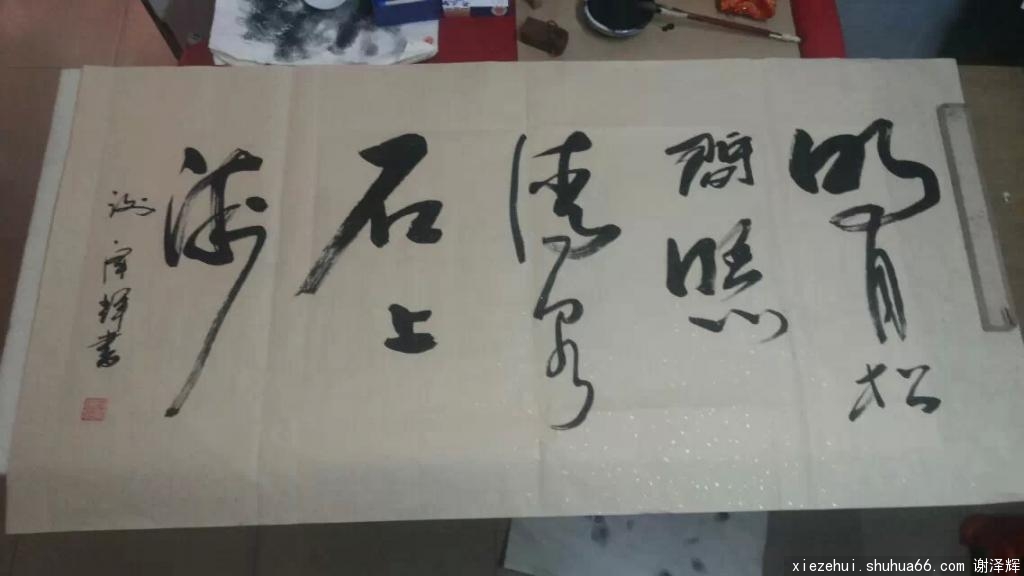 明月松
间照
清泉
石上
流
谢泽辉书
xiezehui.shuhua66.com 谢泽辉